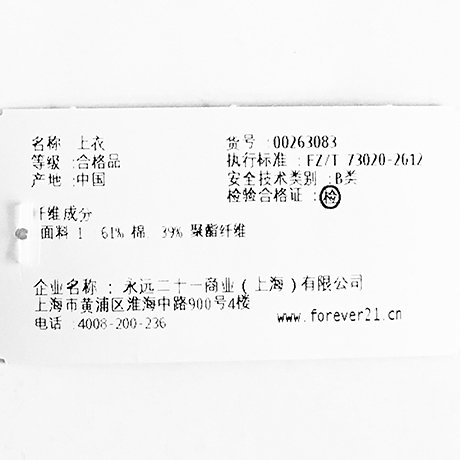 名称 上衣
货号 :00263083
等级 :合格品
执行标准 : FZ/T 73020-2012
产地 :中国
安全技术类别 : B类
检验合格证 : 检
纤维成分
面料 1 61% 棉 39% 聚酯纤维
企业名称 : 永远二十一商业(上海)有限公司
上海市黄浦区淮海中路900号4楼
电话 :4008-200-236
www.forever21.cn